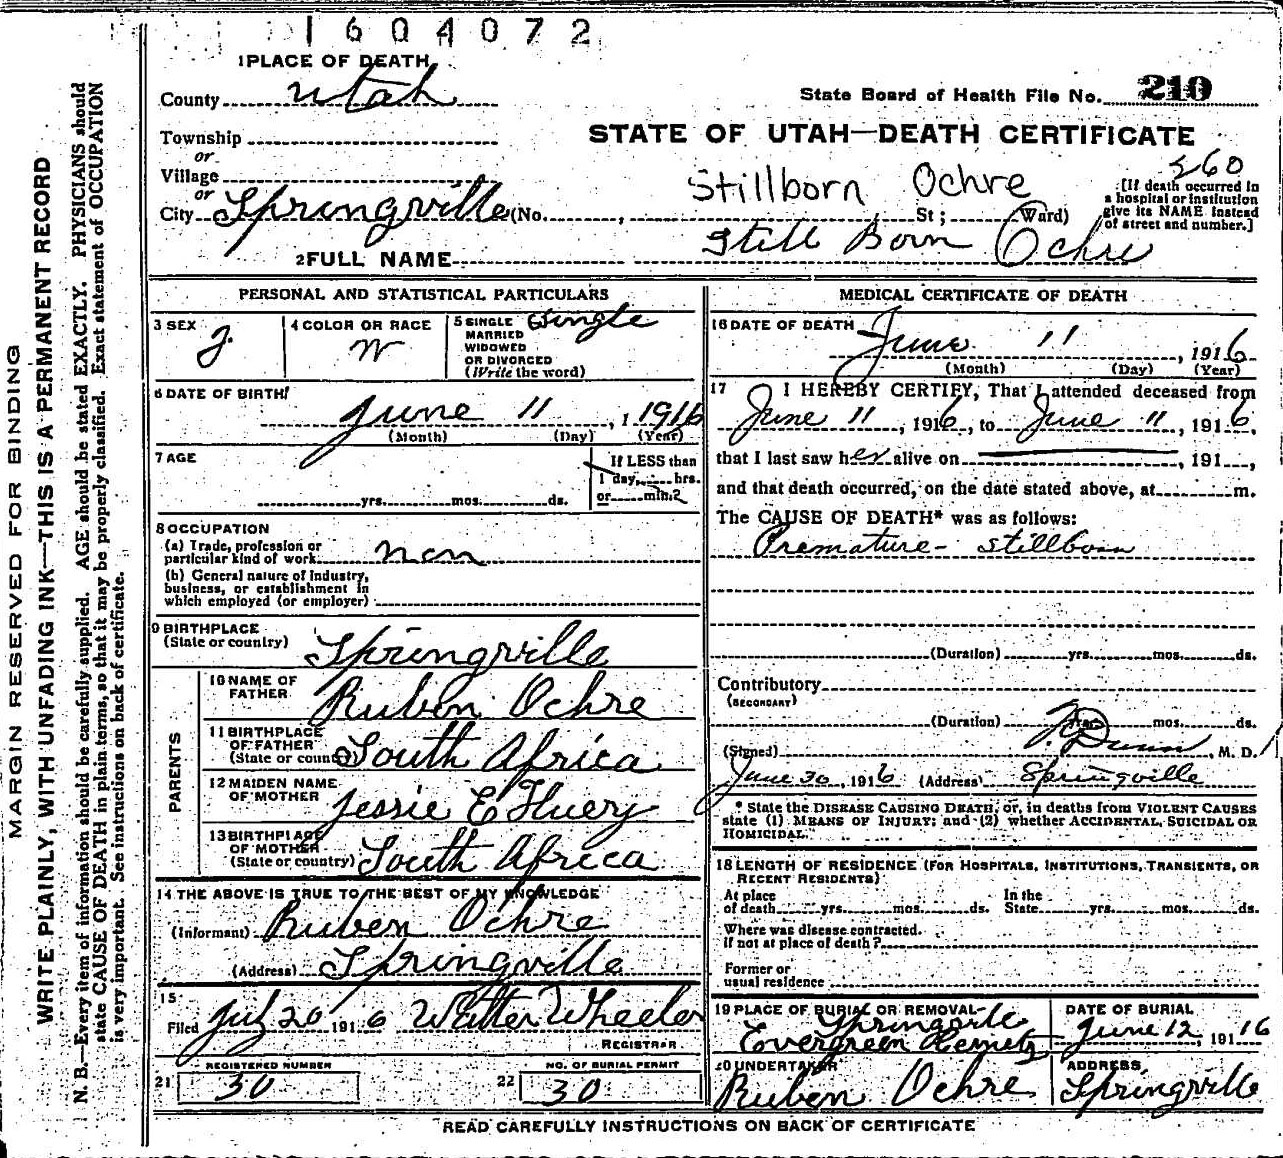 1604072
1 PLACE OF DEATH
County Utah
State Board of Health File No. 210
Township
or
Village
or
City Springville (No. , St; Ward)
STATE OF UTAH—DEATH CERTIFICATE
Stillborn Ochre
260
[If death occurred in a hospital or institution give its NAME instead of street and number.]
2 FULL NAME Still Born Ochre
PERSONAL AND STATISTICAL PARTICULARS
3 SEX F.
4 COLOR OR RACE W
5 SINGLE MARRIED WIDOWED OR DIVORCED (Write the word) Single
6 DATE OF BIRTH
June 11, 1916
(Month) (Day) (Year)
7 AGE
yrs. mos. ds.
If LESS than
1 day, hrs.
or min.?
8 OCCUPATION
(a) Trade, profession or
particular kind of work non
(b) General nature of Industry,
business, or establishment in
which employed (or employer)
9 BIRTHPLACE
(State or country) Springville
PARENTS
10 NAME OF
FATHER Ruben Ochre
11 BIRTHPLACE
OF FATHER
(State or country) South Africa
12 MAIDEN NAME
OF MOTHER Jessie E
13 BIRTHPLACE
OF MOTHER
(State or country) South Africa
14 THE ABOVE IS TRUE TO THE BEST OF MY KNOWLEDGE
(Informant) Ruben Ochre
(Address) Springville
15
Filed July 20 1916 Walter Wheeler
REGISTRAR
REGISTERED NUMBER
21 30
NO. OF BURIAL PERMIT
22 30
MEDICAL CERTIFICATE OF DEATH
16 DATE OF DEATH
June 11, 1916
(Month) (Day) (Year)
17 I HEREBY CERTIFY, That I attended deceased from
June 11, 1916, to June 11, 1916,
that I last saw her alive on , 191 ,
and that death occurred, on the date stated above, at m.
The CAUSE OF DEATH* was as follows:
Premature - stillborn
(Duration) yrs. mos. ds.
Contributory
(SECONDARY)
(Duration) yrs. mos. ds.
(Signed) Dunn, M. D.
June 20, 1916 (Address) Springville
* State the DISEASE CAUSING DEATH, or, in deaths from VIOLENT CAUSES
state (1) MEANS OF INJURY; and (2) whether ACCIDENTAL, SUICIDAL OR
HOMICIDAL.
18 LENGTH OF RESIDENCE (FOR HOSPITALS, INSTITUTIONS, TRANSIENTS, OR
RECENT RESIDENTS)
At place In the
of death yrs. mos. ds. State yrs. mos. ds.
Where was disease contracted.
if not at place of death?
Former or
usual residence
19 PLACE OF BURIAL OR REMOVAL
Springville
Evergreen
DATE OF BURIAL
June 12, 1916
20 UNDERTAKER
Ruben Ochre
ADDRESS
Springville
READ CAREFULLY INSTRUCTIONS ON BACK OF CERTIFICATE
MARGIN RESERVED FOR BINDING
WRITE PLAINLY, WITH UNFADING INK—THIS IS A PERMANENT RECORD
N. B.—Every item of information should be carefully supplied. AGE should be stated EXACTLY. PHYSICIANS should
state CAUSE OF DEATH in plain terms, so that it may be properly classified. Exact statement of OCCUPATION
is very important. See instructions on back of certificate.